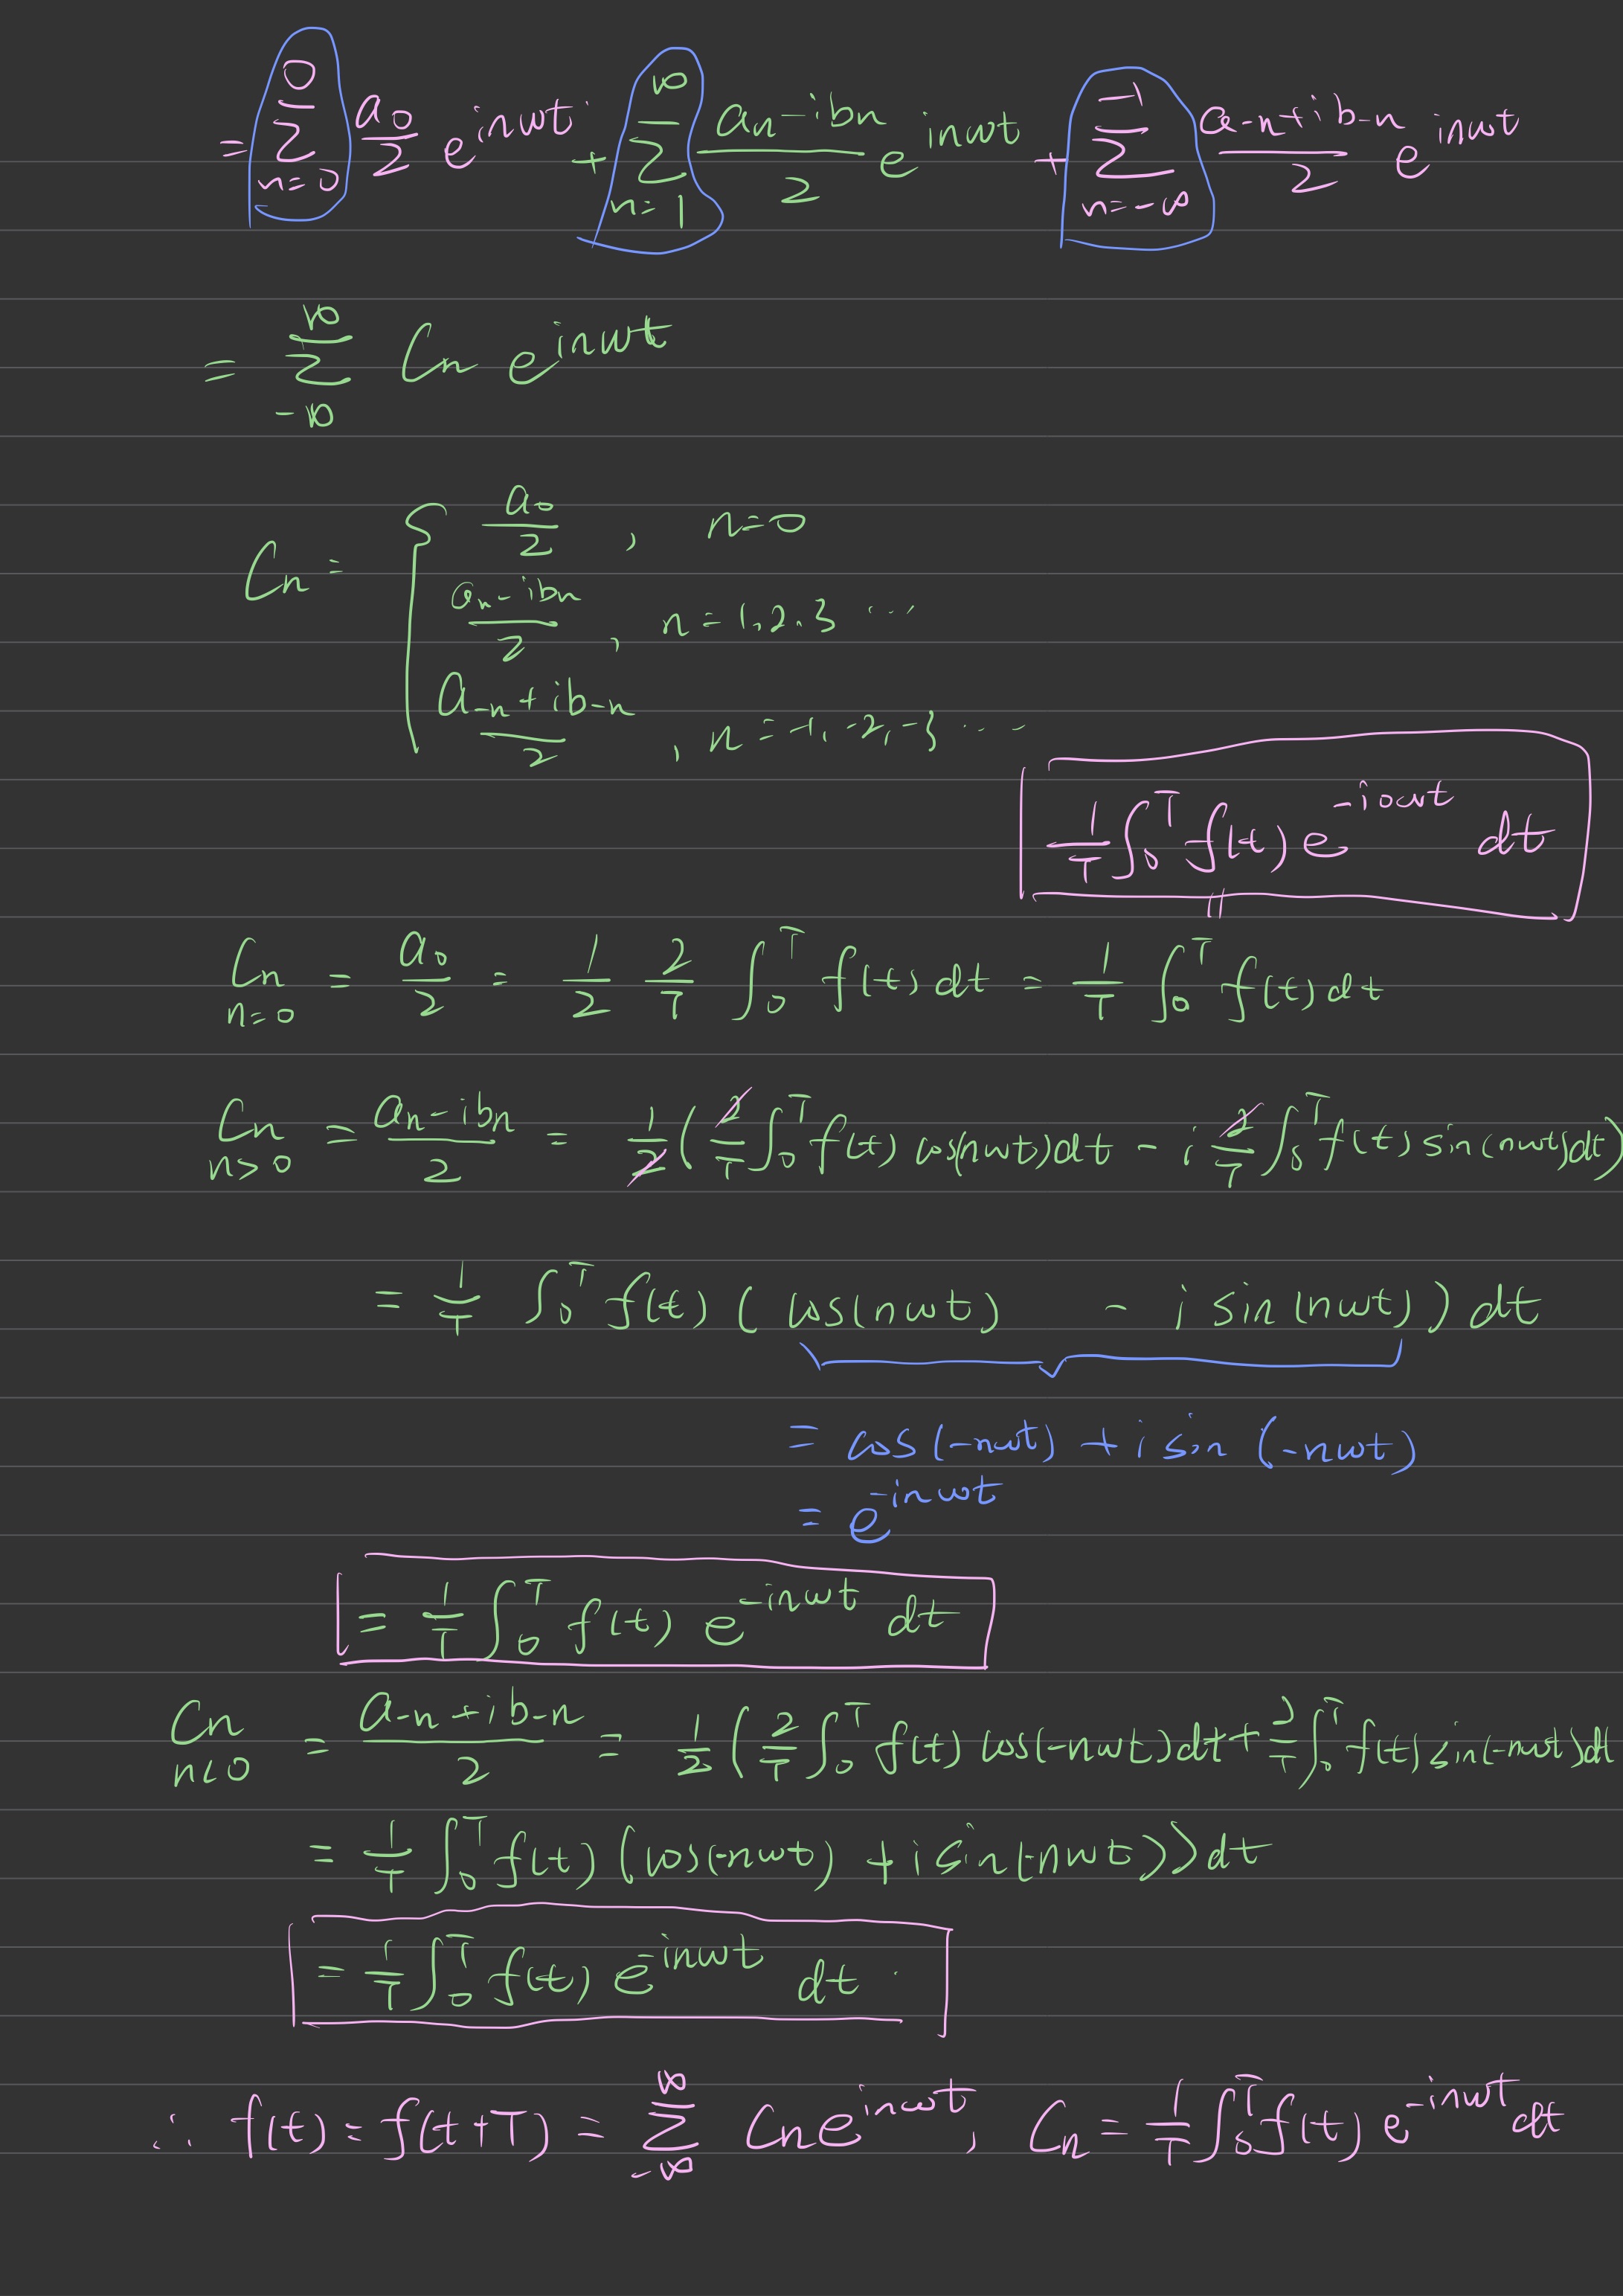 = \sum_{n=0}^{0} \frac{a_0}{2} e^{inωt} + \sum_{n=1}^{∞} \frac{a_n - ib_n}{2} e^{inωt} + \sum_{n=-∞}^{-1} \frac{a_{-n} + ib_{-n}}{2} e^{inωt}
= \sum_{-∞}^{∞} C_n e^{inωt}
C_n = { \frac{a_0}{2}, n=0
\frac{a_n - ib_n}{2}, n=1, 2, 3 ...
\frac{a_{-n} + ib_{-n}}{2}, n=-1, -2, -3 ...
\frac{1}{T} \int_0^T f(t) e^{-i0ωt} dt
||
C_n = \frac{a_0}{2} = \frac{1}{2} \frac{2}{T} \int_0^T f(t) dt = \frac{1}{T} \int_0^T f(t) dt
n=0
C_n = \frac{a_n - ib_n}{2} = \frac{1}{2} ( \frac{2}{T} \int_0^T f(t) cos(nωt) dt - i \frac{2}{T} \int_0^T f(t) sin(nωt) dt )
n>0
= \frac{1}{T} \int_0^T f(t) ( cos(nωt) - i sin(nωt) ) dt
= cos(-nωt) + i sin(-nωt)
= e^{-inωt}
= \frac{1}{T} \int_0^T f(t) e^{-inωt} dt
C_n = \frac{a_{-n} + ib_{-n}}{2} = \frac{1}{2} ( \frac{2}{T} \int_0^T f(t) cos(-nωt) dt + \frac{2}{T} \int_0^T f(t) sin(-nωt) dt
n<0
= \frac{1}{T} \int_0^T f(t) ( cos(-nωt) + i sin(-nωt) ) dt
= \frac{1}{T} \int_0^T f(t) e^{-inωt} dt
∴ f(t) = f(t+T) = \sum_{-∞}^{∞} C_n e^{inωt}, C_n = \frac{1}{T} \int_0^T f(t) e^{-inωt} dt